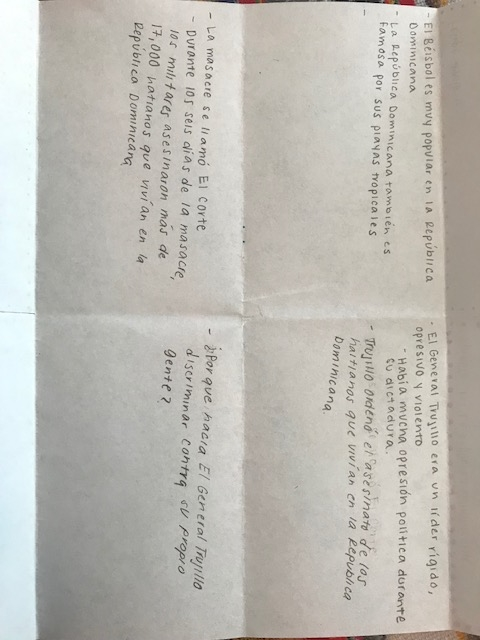 - El Béisbol es muy popular en la República
Dominicana
- La República Dominicana también es
famosa por sus playas tropicales
-
- El General Trujillo era un líder rígido,
opresivo y violento
- Había mucha opresión política durante
su dictadura.
- Trujillo ordenó el asesinato de los
haitianos que vivían en la República
Dominicana.
- La masacre se llamó El Corte
- Durante los seis días de la masacre,
los militares asesinaron más de
17,000 hatianos que vivían en la
República Dominicana
- ¿Por que hacía El General Trujillo
discriminar contra su propro
gente?